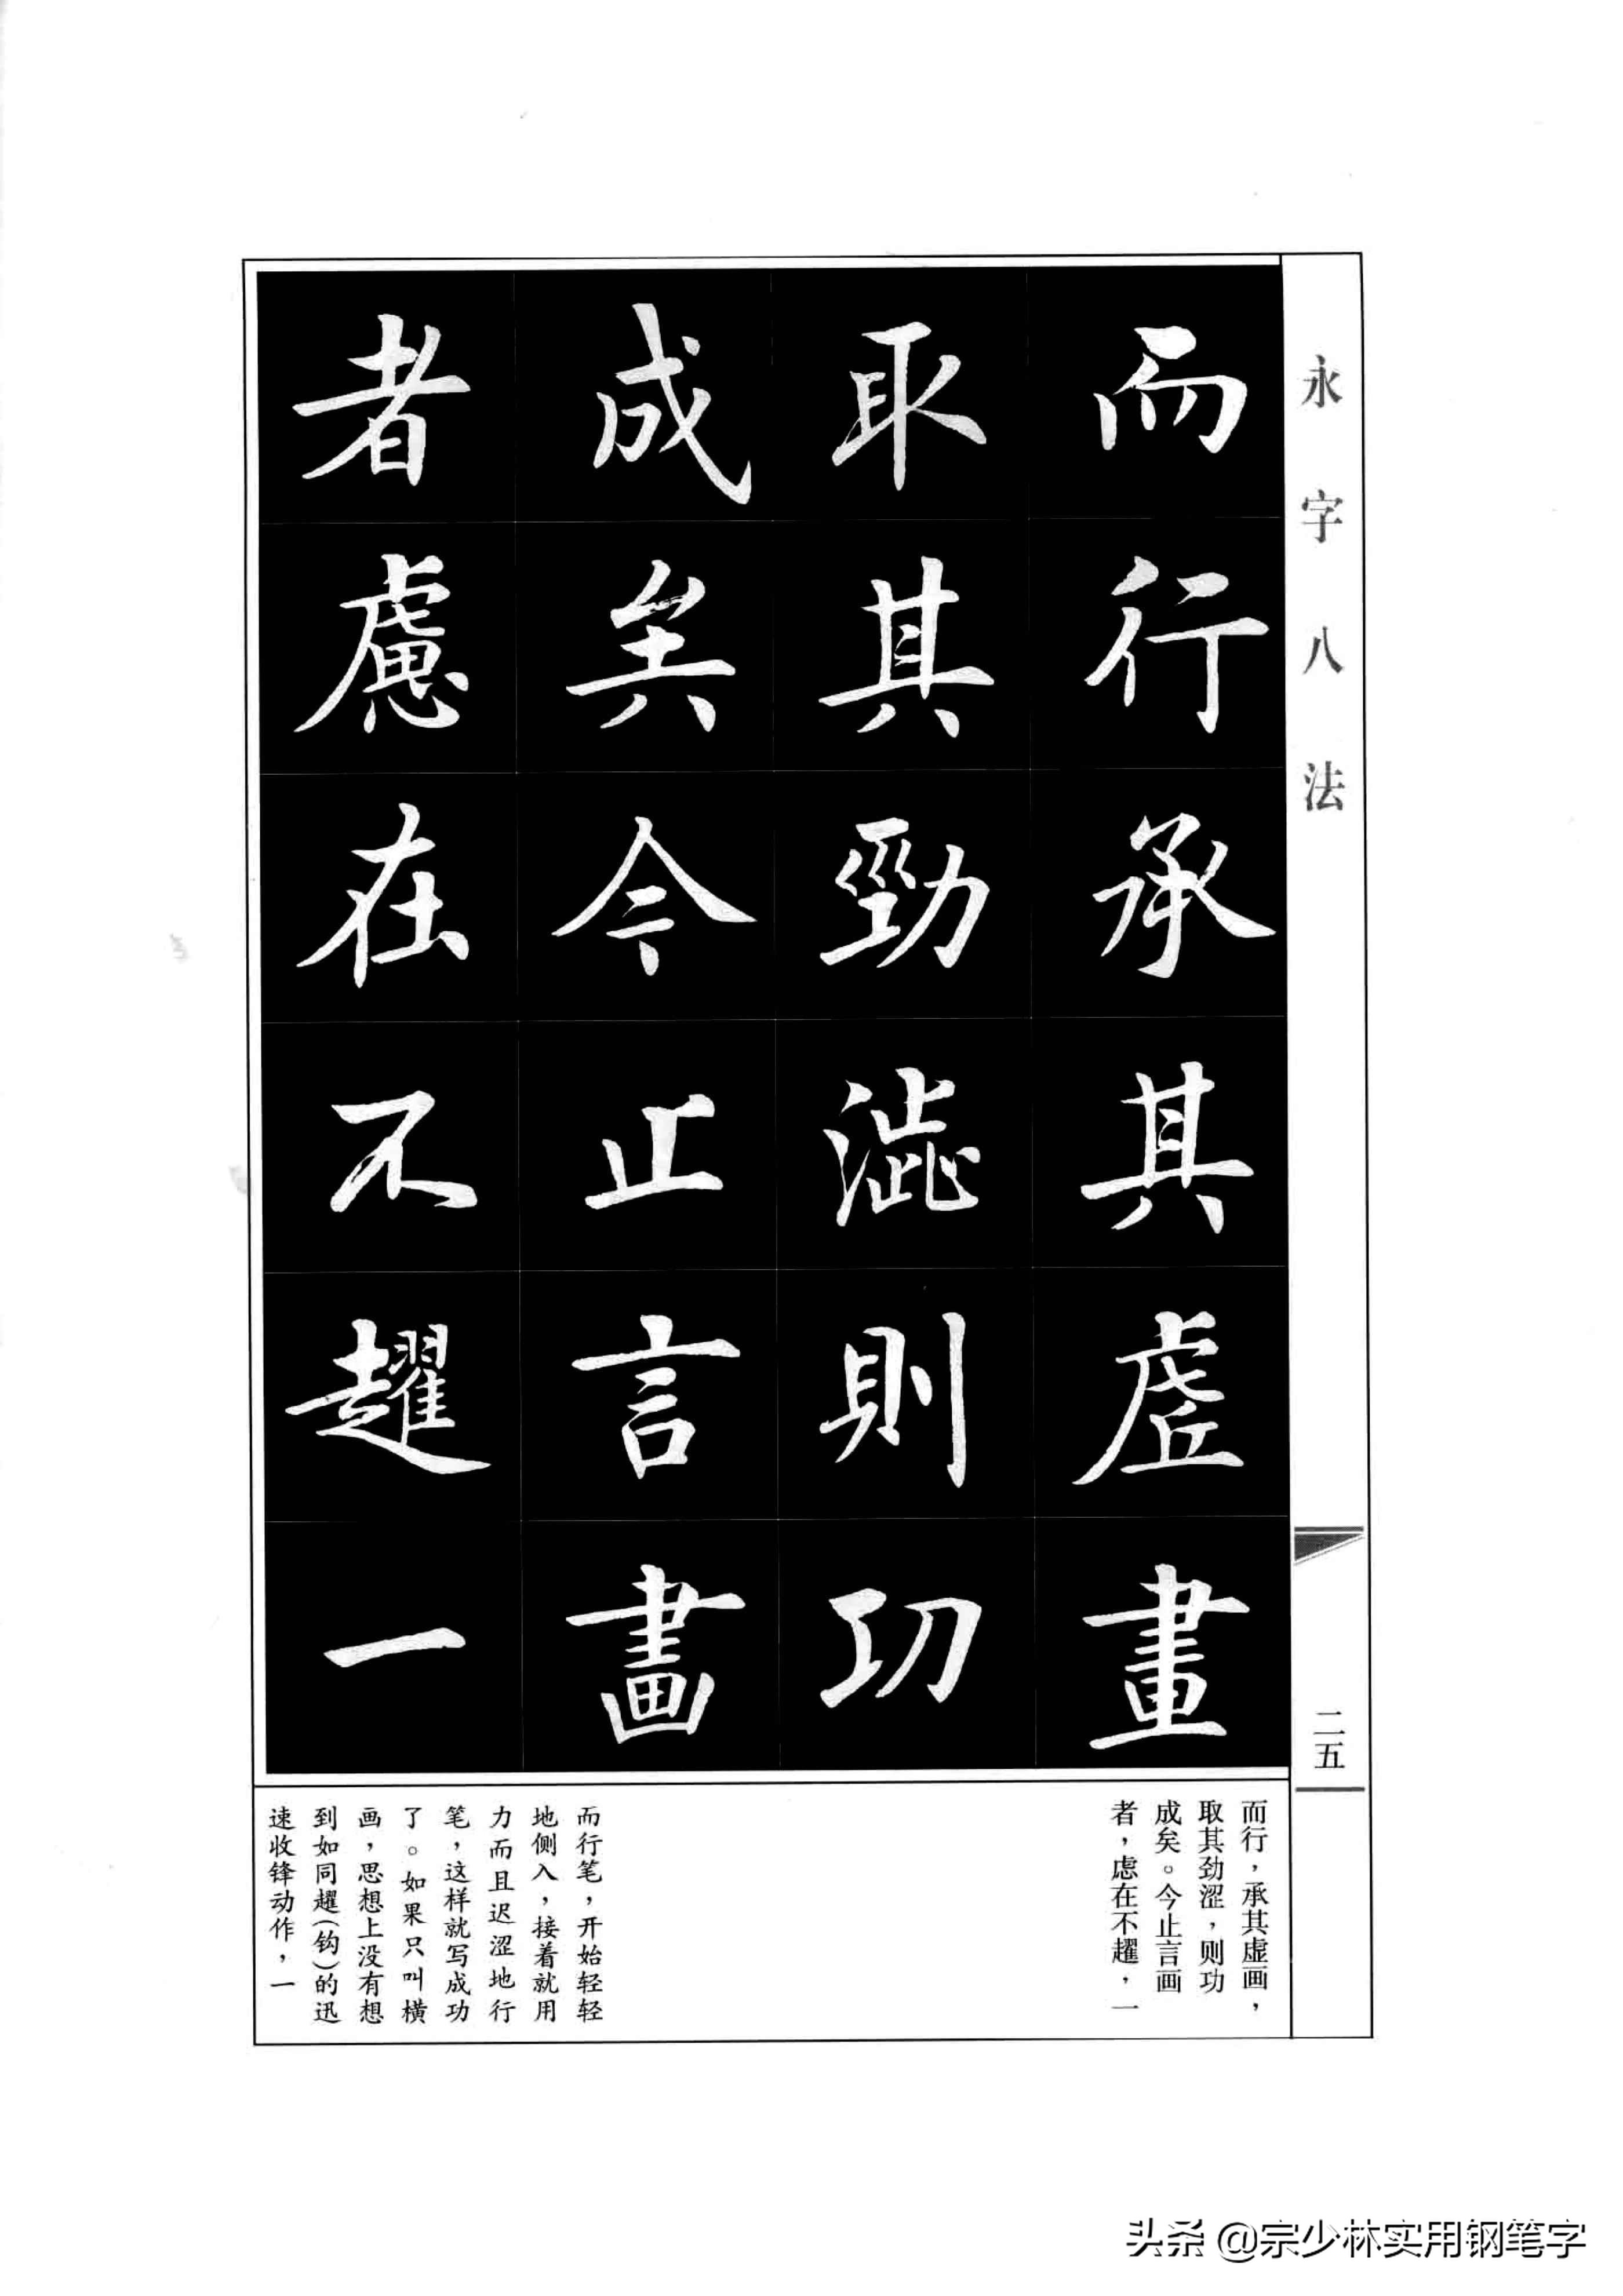 永字八法
二五
而行承其虛畫
取其勁澁則功
成矣今止言畫
者慮在不趯一
而行，承其虚画，
取其劲涩，则功
成矣。今止言画
者，虑在不趯，一
而行笔，开始轻轻
地侧入，接着就用
力而且迟涩地行
笔，这样就写成功
了。如果只叫横
画，思想上没有想
到如同趯（钩）的迅
速收锋动作，一
头条 @宗少林实用钢笔字